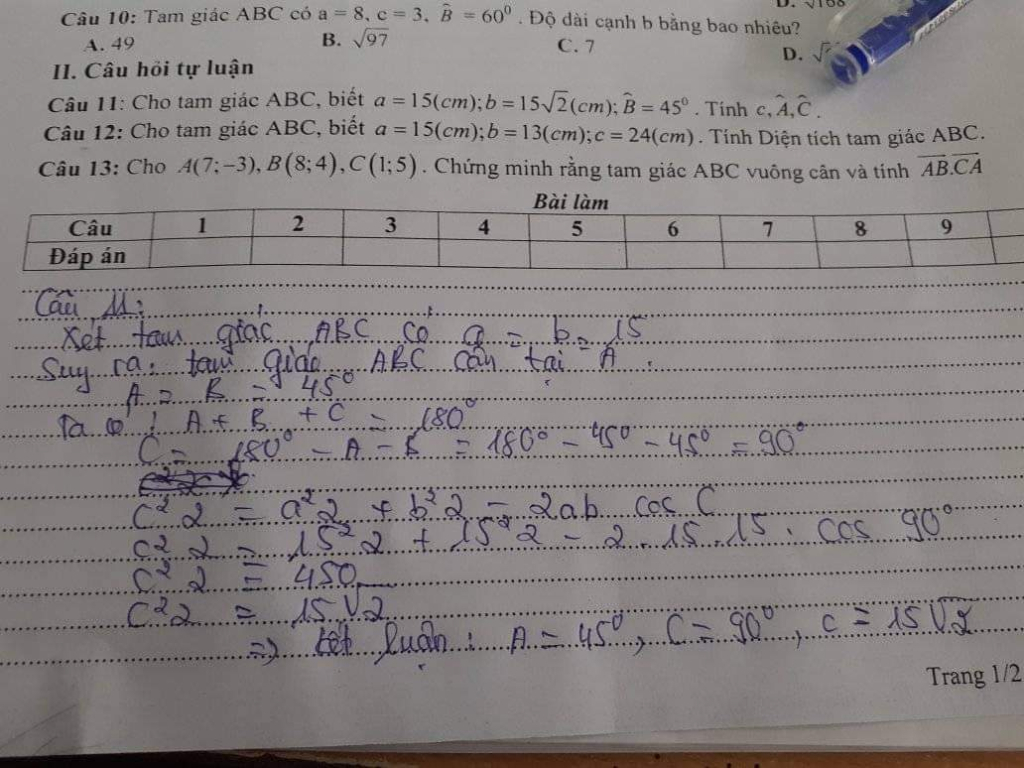 D. √168
Câu 10: Tam giác ABC có a = 8, c = 3, B̂ = 60⁰ . Độ dài cạnh b bằng bao nhiêu?
A. 49 B. √97 C. 7 D. √
II. Câu hỏi tự luận
Câu 11: Cho tam giác ABC, biết a = 15(cm); b = 15√2(cm); B̂ = 45⁰ . Tính c, Â, Ĉ .
Câu 12: Cho tam giác ABC, biết a = 15(cm); b = 13(cm); c = 24(cm) . Tính Diện tích tam giác ABC.
Câu 13: Cho A(7;−3), B(8;4), C(1;5) . Chứng minh rằng tam giác ABC vuông cân và tính A͞B͞.C͞A͞
Bài làm
Câu 1 2 3 4 5 6 7 8 9
Đáp án
Câu 11:
Xét tam giác ABC có a = b = 15
Suy ra: tam giác ABC cân tại A .
A = B = 45⁰
Ta có : A + B + C = 180⁰
C = 180⁰ − A − B = 180⁰ − 45⁰ − 45⁰ = 90⁰
C² 2 = a² 2 + b² 2 − 2ab cos C
C² 2 = 15² 2 + 15² 2 − 2 . 15 . 15 . cos 90⁰
C² 2 = 450
C² 2 = 15√2
=> kết luận : A = 45⁰, C = 90⁰, c = 15√2
Trang 1/2